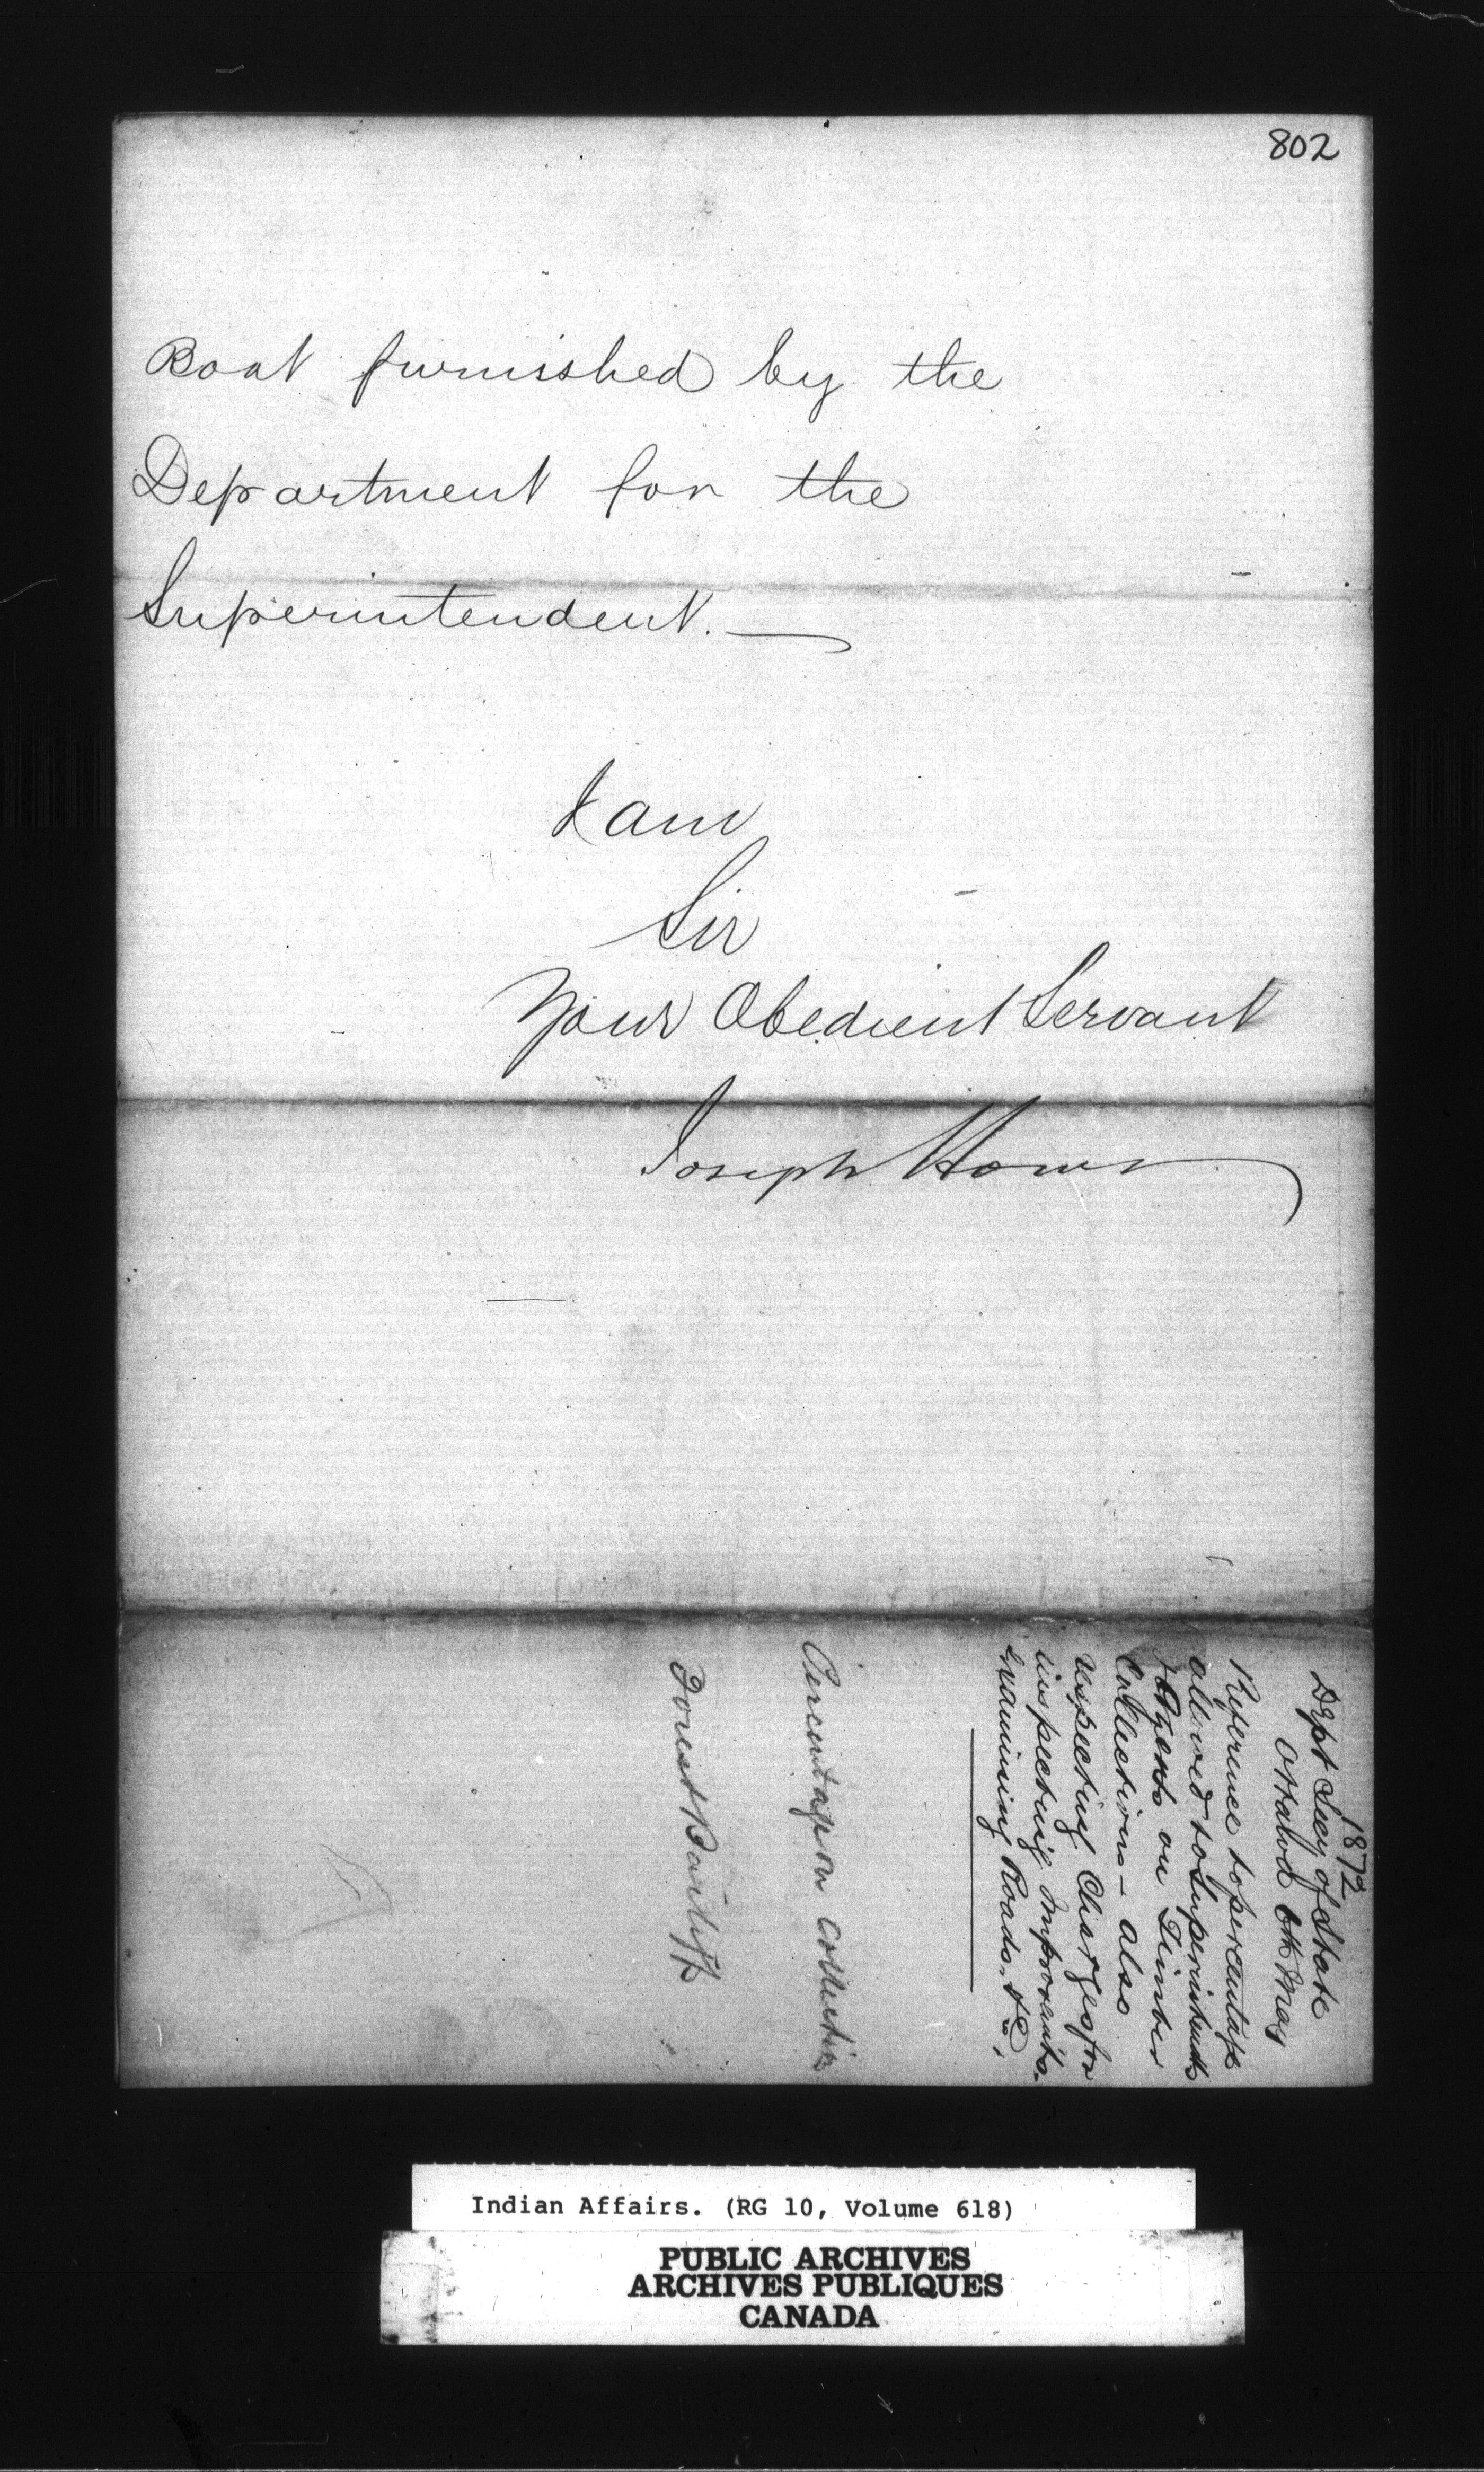 802
Boat furnished by the
Department for the
Superintendent.—
I am
Sir
Your Obedient Servant
Joseph Howe
1872
Dept Secy of State
Ottawa 6th May
Reference to percentage
allowed to Superintendts
& Agents on Timber
Collections - also
respecting Charges for
inspecting Improvents.
Examining Roads. &c.
Percentage on Collectins
Forest Bailiff
Indian Affairs. (RG 10, Volume 618)
PUBLIC ARCHIVES
ARCHIVES PUBLIQUES
CANADA